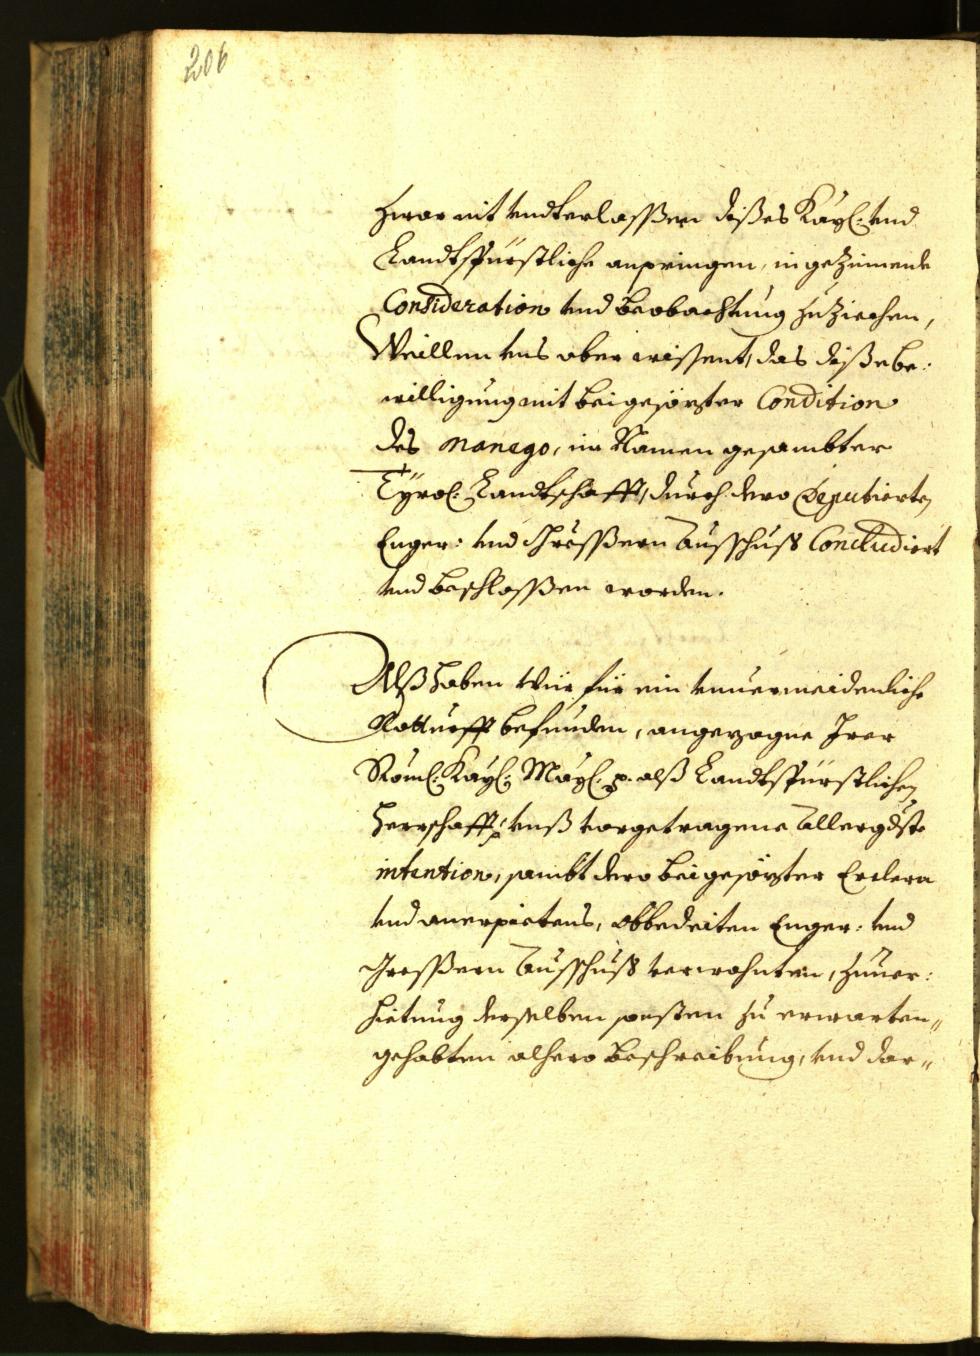 206
zwar nit vndterlassßen dißes Kayl: vnd
Landtsfürstliche anpringen, in gezimende
Consideration vnd beobachtung zuziechen,
Weillen vns aber wissent, das diße be:
willigung mit beigesözter Condition
des Manego, im Namen gesambter
Tyrol: Landtschafft, durch dero Deputierte
Enger: vnd Grössßern Ausschuss Concludiert
vnd beschlossßen worden.
Alß haben wür für ein vnuermeidenliche
Notturfft befunden, angezogne Irer
Röml: Kayl: Mayl: p. alß Landtsfürstlichen
Herrschafft, vnß vorgetragene Allergdste
intention, sambt dero beigesözter Erclera
vnd anerpietens, obbedeiten Enger: vnd
Grossßern Ausschuß verwohnten, zuuer:
hietung derselben sonsten zu erwarten
gehabten alhero beschreibung, vnd dar